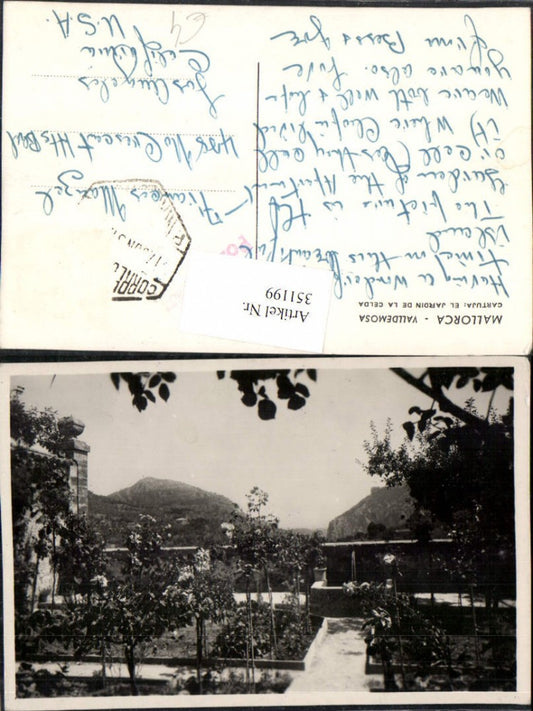 MALLORCA - VALLDEMOSA
CARTUJA: EL JARDIN DE LA CELDA
Having a wonderful
time in this beautiful
island
The picture is the
Garden of the Apartment
or Cell (as they call
it) where Chopin lived
We are both well & hope
you are also. Love
from Bess & Joe
Frances Mangel
No Crescent Hts Blvd
Los Angeles
California
U.S.A.
CORREO
Artikel Nr.
351199